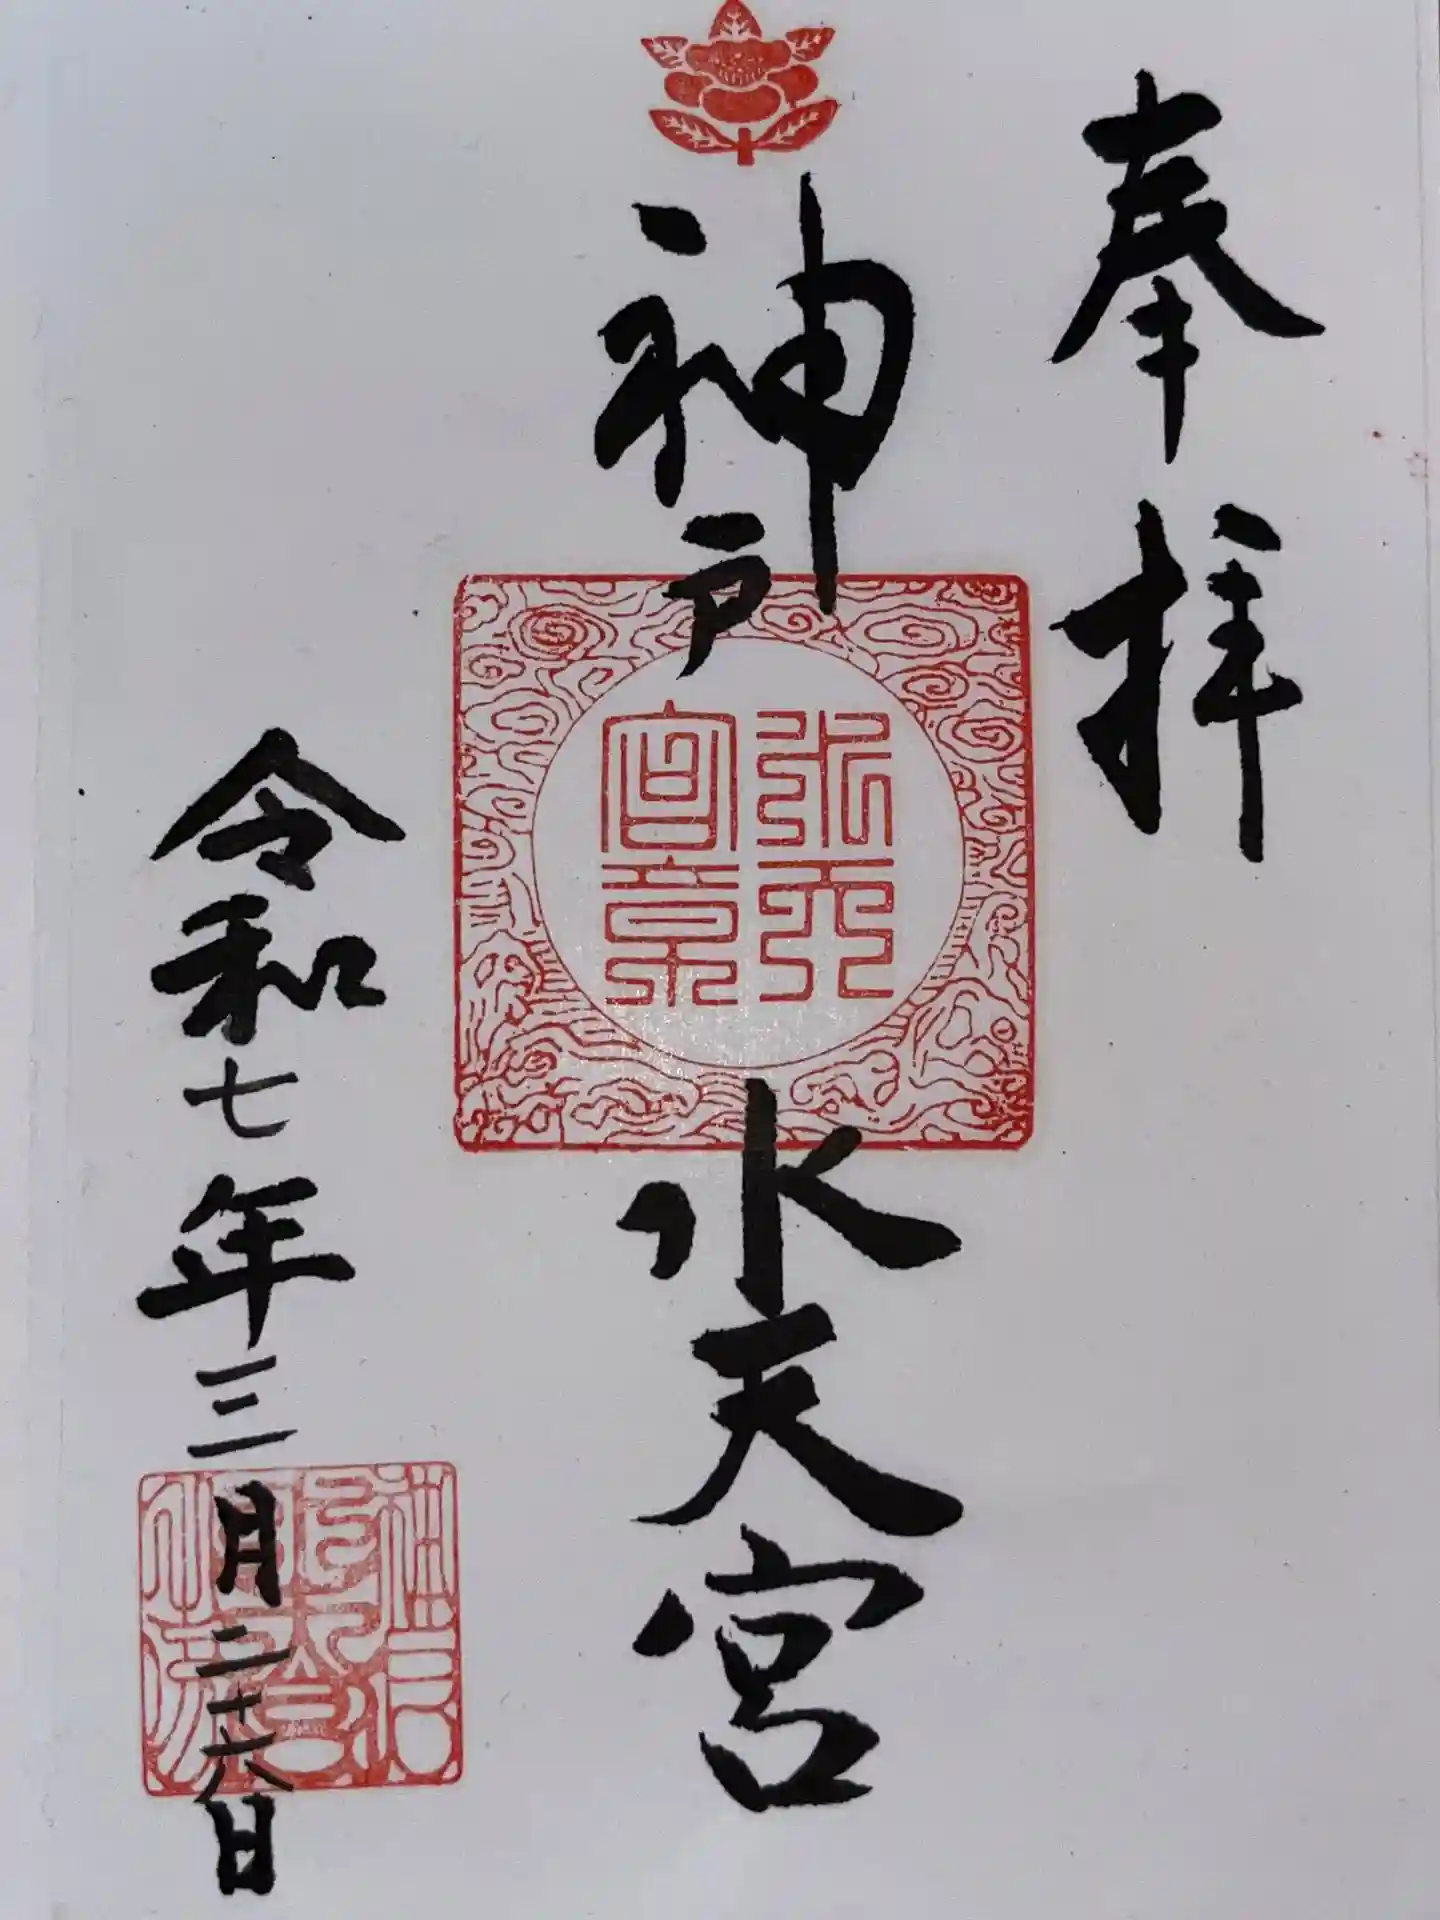 奉拝
神戸
水天宮章
水天宮
令和七年三月二十六日